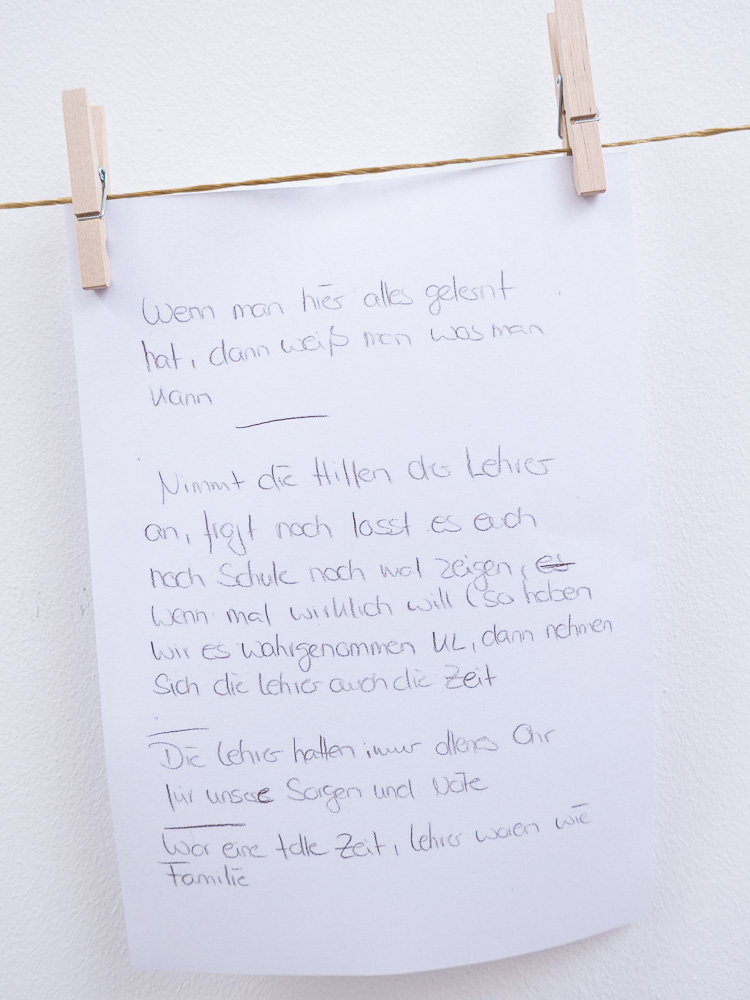 Wenn man hier alles gelernt
hat, dann weiß man was man
kann
Nimmt die Hilfen der Lehrer
an, fragt nach lasst es euch
nach Schule noch mal zeigen, es
wenn mal wirklich will (so haben
wir es wahrgenommen KL, dann nehmen
sich die Lehrer auch die Zeit
Die Lehrer hatten immer offenes Ohr
für unsere Sorgen und Nöte
War eine tolle Zeit, Lehrer waren wie
Familie